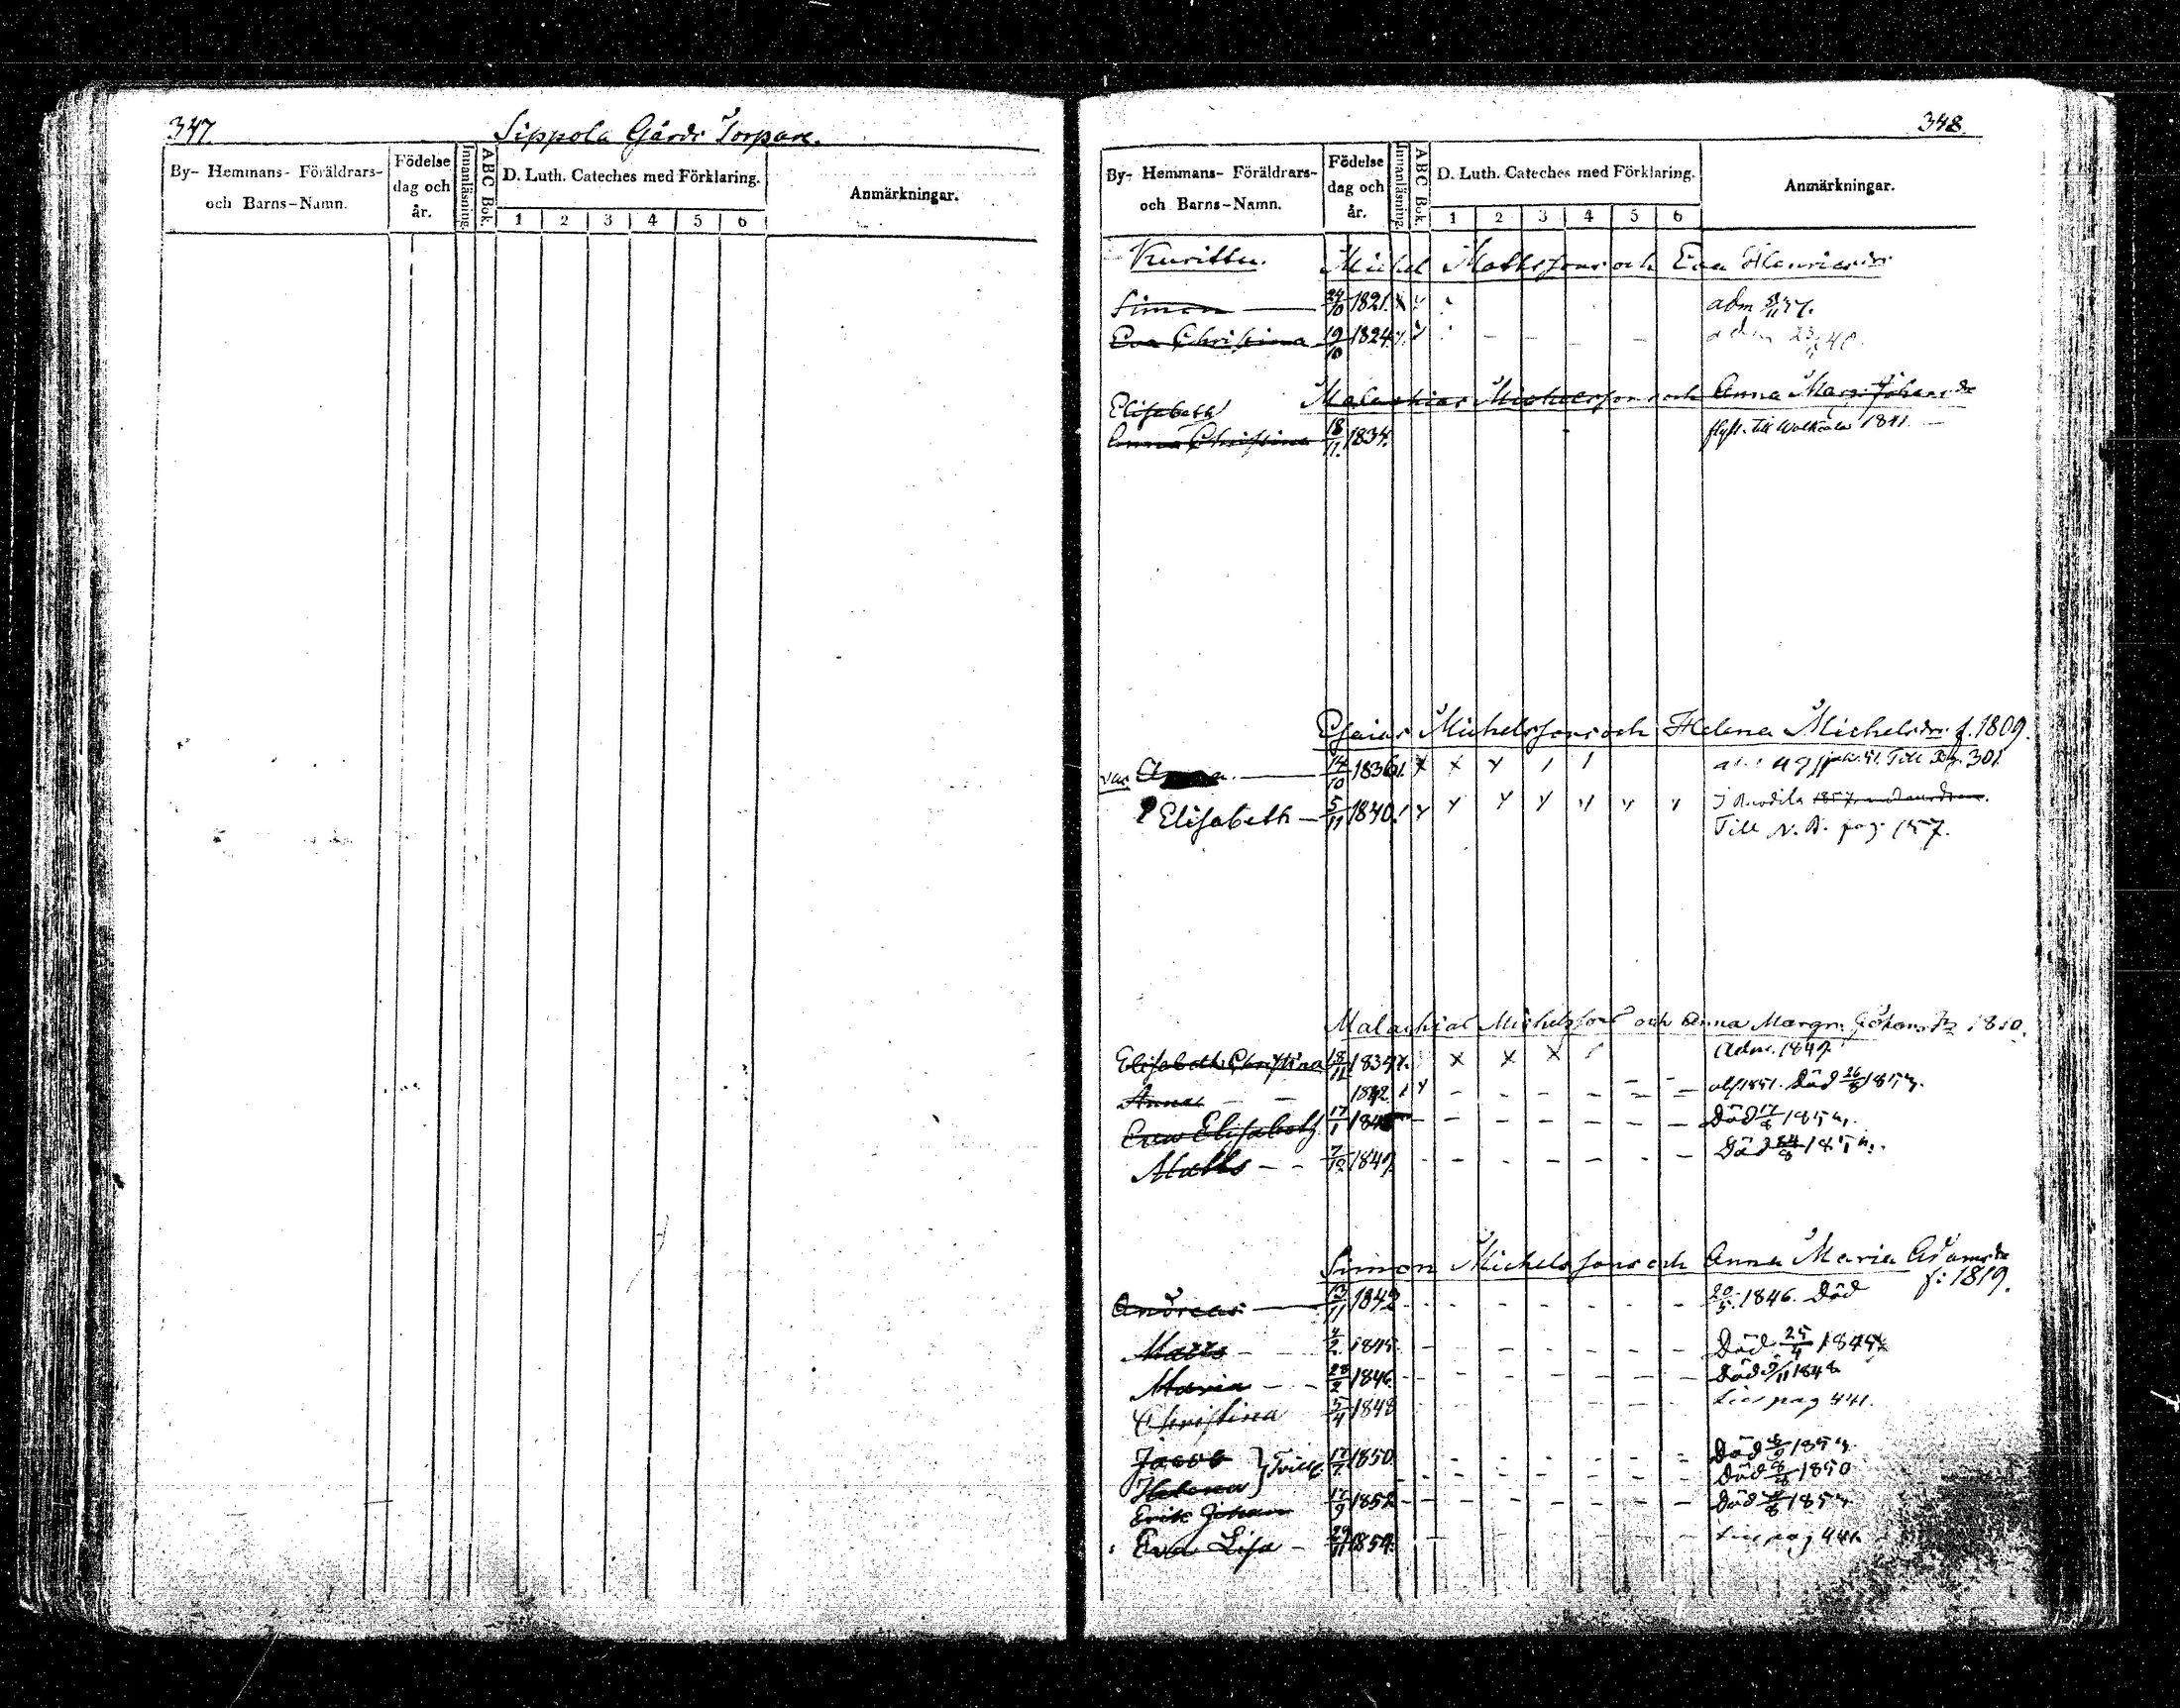 347.
Sippola Gårds Torpare.
By- Hemmans- Föräldrars- och Barns-Namn.
Födelse dag och år.
Innanläsning.
ABC Bok.
D. Luth. Cateches med Förklaring.
1 2 3 4 5 6
Anmärkningar.
348.
By- Hemmans- Föräldrars- och Barns-Namn.
Födelse dag och år.
Innanläsning.
ABC Bok.
D. Luth. Cateches med Förklaring.
1 2 3 4 5 6
Anmärkningar.
Kurittu. Michel Mattsson och Eva Henricsdr
Simon 24/10 1821. adm
Eva Christina 19/10 1824
Malachias Michelsson och Anna Marg. Johansdr
Elisabeth
Anna Christina 18/11. 1834. flytt. till Walkeala 1841.
Esaias Michelsson och Helena Michelsdr. f. 1809.
14/10 1836 Till 301
Elisabeth 5/11 1840.
Till N. B. pag. 157.
Malachias Michelsson och Anna Margr. Johansdr 1810.
Elisabeth Christina 18/11 1834 Adm. 1847.
Anna 1842 1851. Död 26/8 1854.
Eva Elisabeth 17/1 Död 17/8 1854.
Matts 7/12 1847 Död 24/8 1854.
Simon Michelsson och Anna Maria Adamsdr
f: 1819.
Andreas 13/11 1842 20/5. 1846. Död
Matts 4/2 1845 Död 25/4 1845
Maria 28/2 1846 Död 9/11 1848
Christina 5/4 1848 till pag 441.
Jacob } Tvill. 17/7 1850 Död 1854.
Helena Död 1850
Erik Johan 17/9 1852 Död 1854
Eva Lisa 29/11 1854. till pag 441.